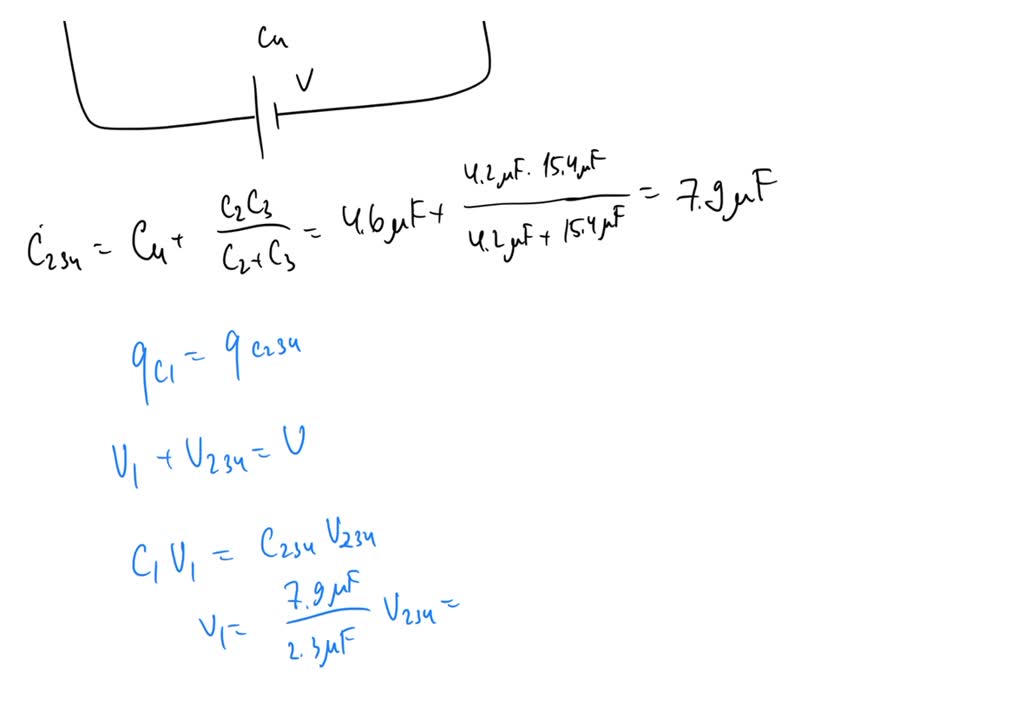 C₄
V
C₂₃₄ = C₄ + C₂C₃ / C₂+C₃ = 4.6μF + 4.2μF · 15.4μF / 4.2μF + 15.4μF = 7.9μF
q_C₁ = q_C₂₃₄
V₁ + V₂₃₄ = V
C₁ V₁ = C₂₃₄ V₂₃₄
V₁ = 7.9μF / 2.3μF V₂₃₄ =